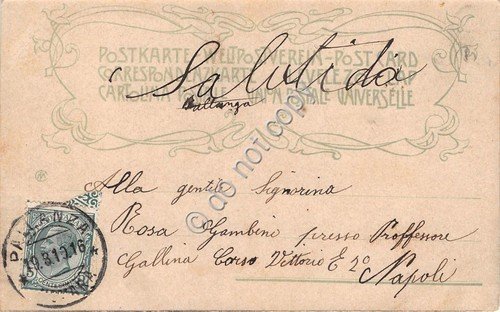 POSTKARTE WELTPOSTVEREIN POSTCARD
CARTOLINA POSTALE UNION POSTALE UNIVERSELLE
Saluti da
Pallanza
do not copy
Alla gentil Signorina
Rosa Gambini presso Proffessore
Gallina Corso Vittorio E 20
Napoli
PALLANZA